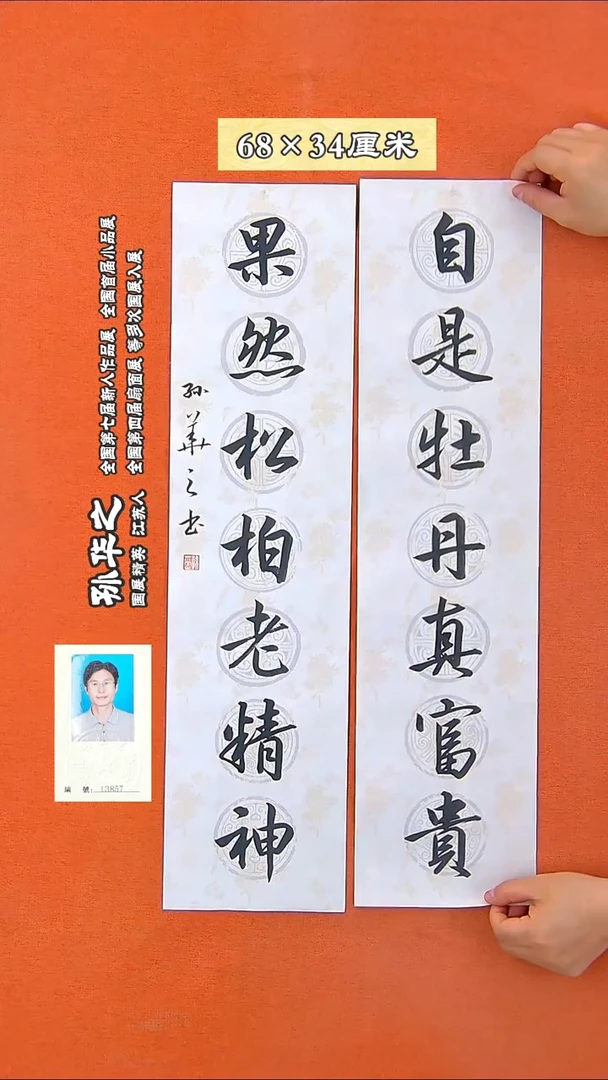 68×34厘米
自是牡丹真富貴
果然松柏老精神
孙華之书
孙华之
国展精英 江苏人
全国第七届新人作品展 全国首届小品展
全国第四届扇面展 等多次国展入展
編 號: 13857